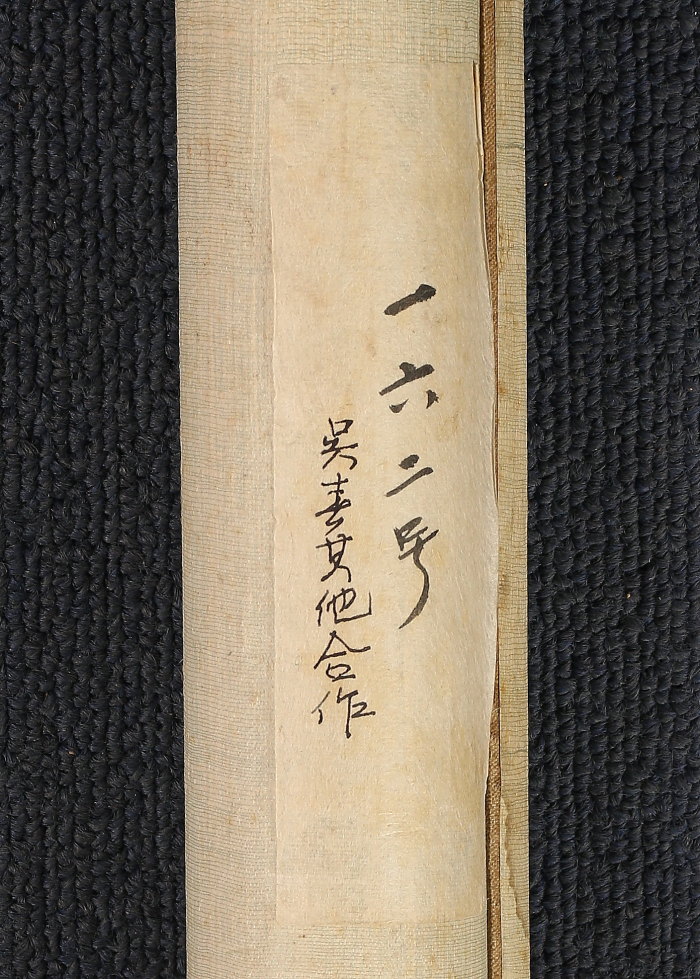 一六二号
呉春其他合作